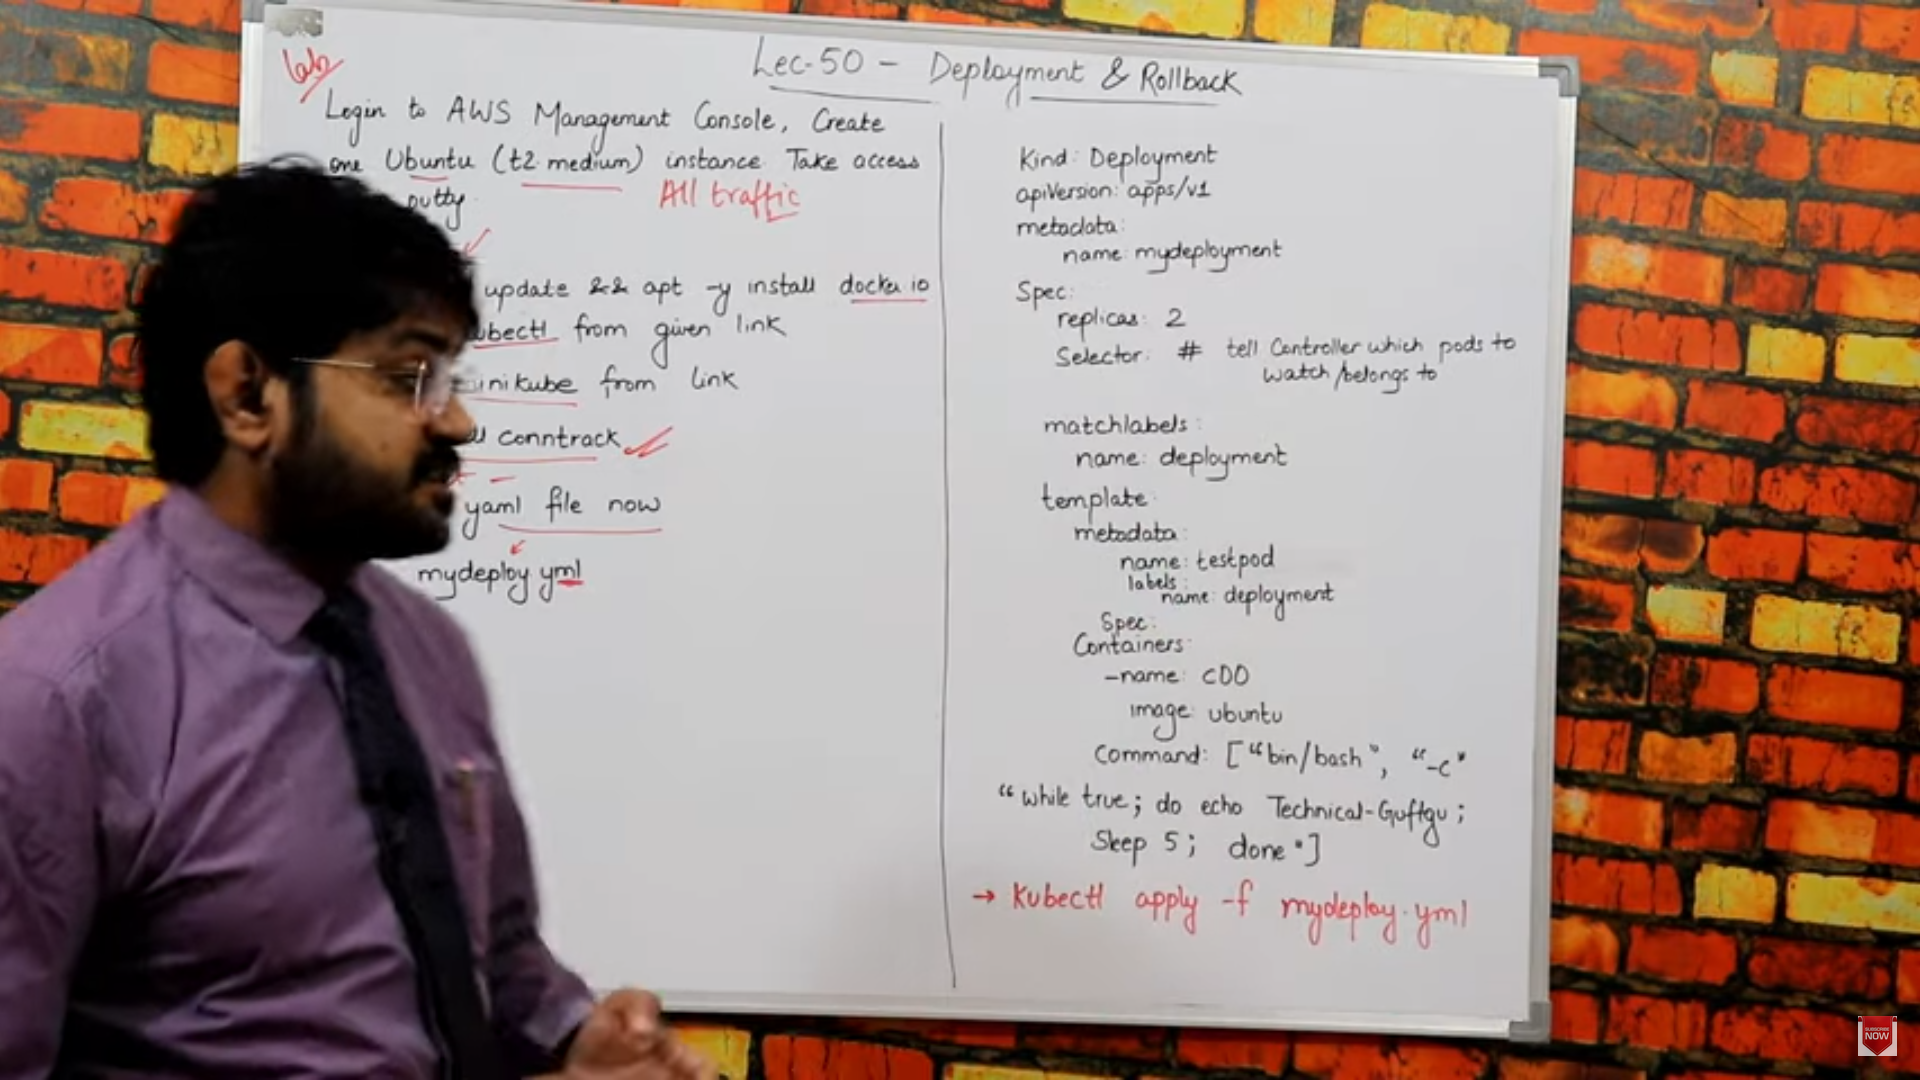 Lec-50 - Deployment & Rollback
Lab
Login to AWS Management Console, Create
one Ubuntu (t2.medium) instance. Take access
putty.
All traffic
update && apt -y install docker.io
from given link
from link
conntrack
yaml file now
mydeploy yml
Kind: Deployment
apiVersion: apps/v1
metadata:
name: mydeployment
Spec:
replicas: 2
Selector: # tell Controller which pods to
watch/belongs to
matchlabels:
name: deployment
template:
metadata:
name: testpod
labels:
name: deployment
Spec:
Containers:
-name: c00
image: ubuntu
Command: ["bin/bash", "-c"
"while true; do echo Technical-Guftgu;
Sleep 5; done"]
→ Kubectl apply -f mydeploy.yml
SUBSCRIBE
NOW